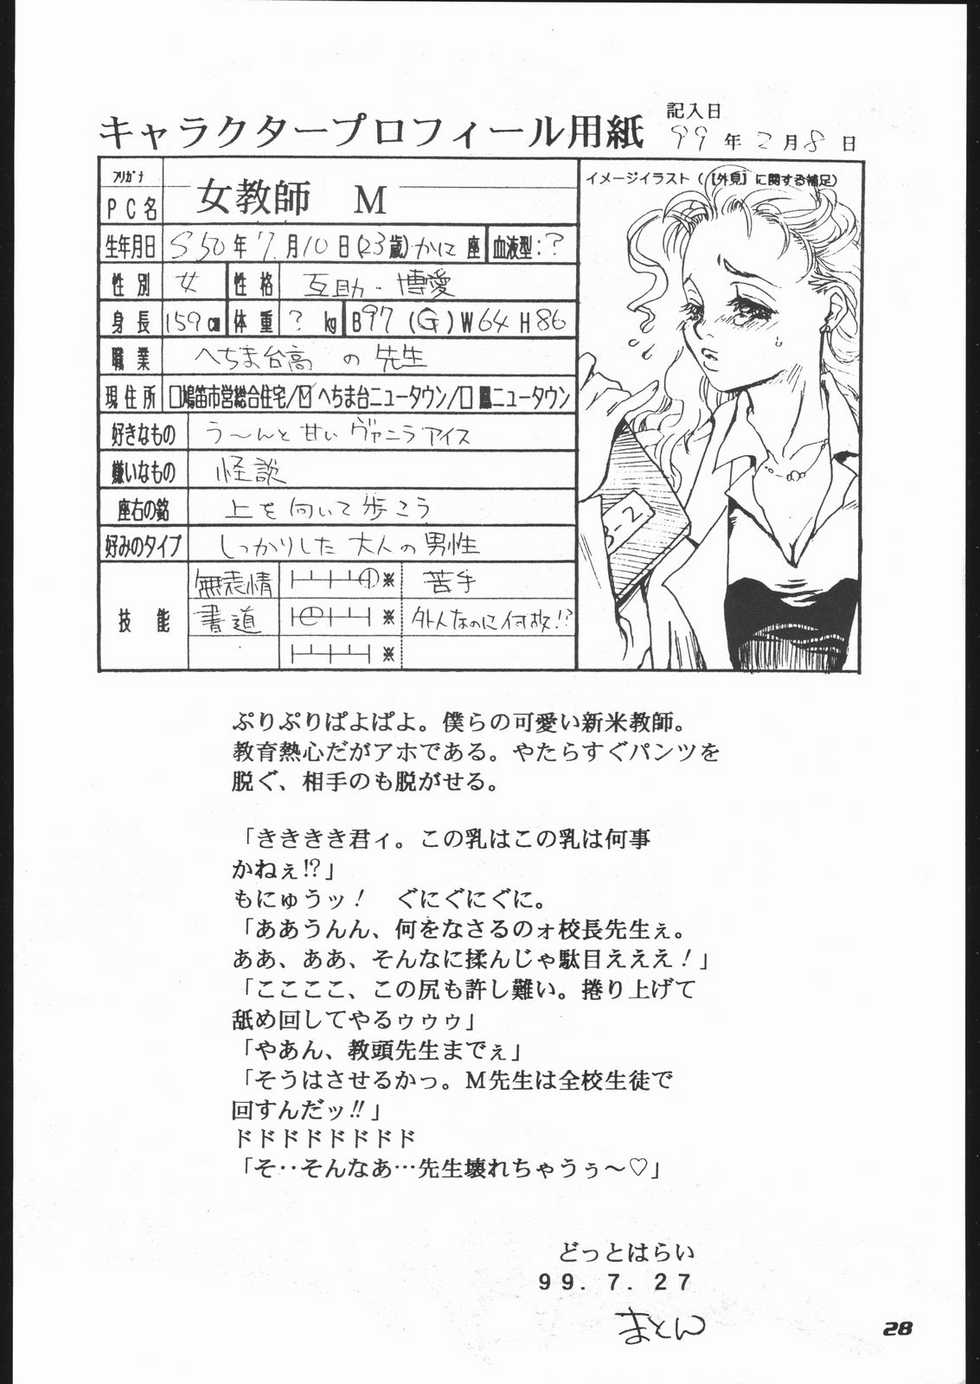 記入日
キャラクタープロフィール用紙 99年2月8日
フリガナ
PC名 女教師 M
イメージイラスト(【外見】に関する補足)
生年月日 S50年7月10日(23歳)かに座 血液型:?
性別 女 性格 互助・博愛
身長 159cm 体重 ?kg B97(G)W64H86
職業 へちま台高の先生
現住所 □鳩笛市営総合住宅/☑へちま台ニュータウン/□鳳ニュータウン
好きなもの う〜んと甘いヴァニラアイス
嫌いなもの 怪談
座右の銘 上を向いて歩こう
好みのタイプ しっかりした大人の男性
技能 無表情 ※ 苦手
書道 ※ 外人なのに何故!?
※
3-2
ぷりぷりぱよぱよ。僕らの可愛い新米教師。
教育熱心だがアホである。やたらすぐパンツを
脱ぐ、相手のも脱がせる。
「きききき君ィ。この乳はこの乳は何事
かねぇ!?」
もにゅうッ! ぐにぐにぐに。
「ああうんん、何をなさるのォ校長先生ぇ。
ああ、ああ、そんなに揉んじゃ駄目えええ!」
「ここここ、この尻も許し難い。捲り上げて
舐め回してやるゥゥゥ」
「やあん、教頭先生までぇ」
「そうはさせるかっ。M先生は全校生徒で
回すんだッ!!」
ドドドドドドドド
「そ‥そんなあ…先生壊れちゃうぅ〜♡」
どっとはらい
99.7.27
まとん
28